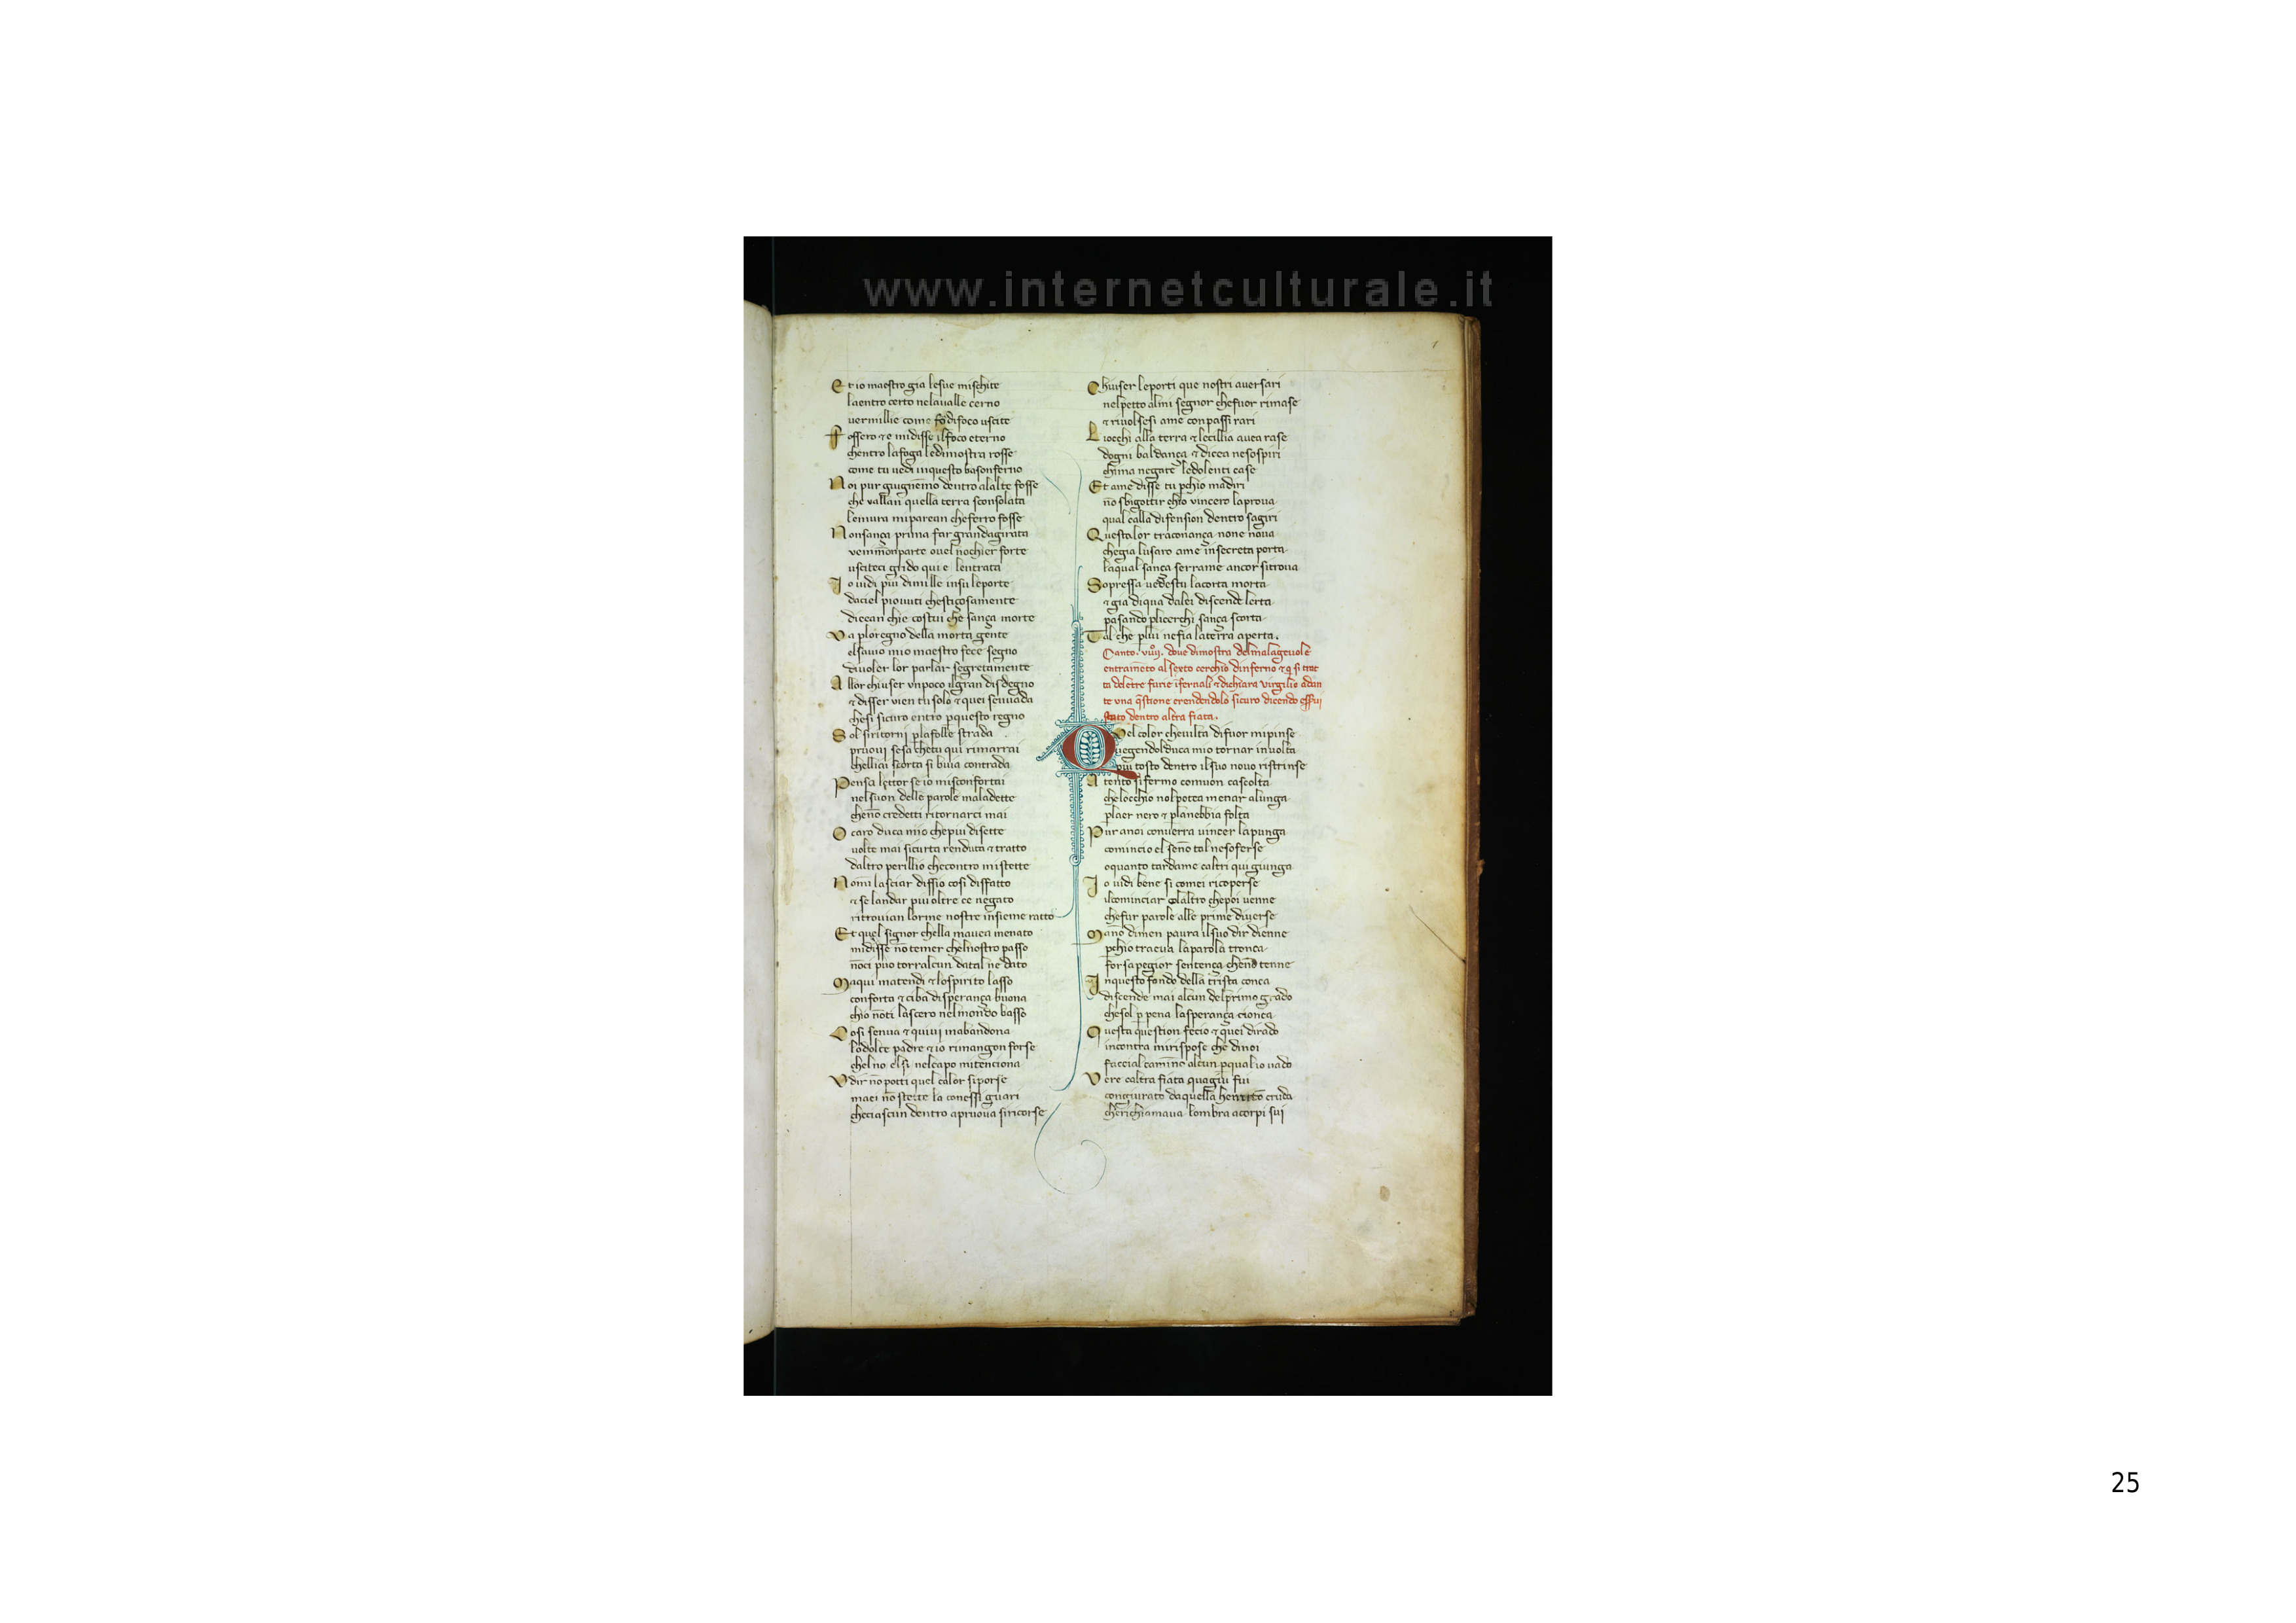 www.internetculturale.it
Et io maestro gia lesue mischite
laentro certo nelaualle cerno
uermillie come difoco uscite
fossero et e midisse ilfoco eterno
chentro lafoga ledimostra rosse
come tu uedi inquesto basonferno
Noi pur guignemo dentro alalte fosse
che vallan quella terra sconsolata
lemura miparean cheferro fosse
Nonsança prima far grandagirata
venimonparte ouel nochier forte
usciteci grido qui e lentrata
Io uidi piu dimille insu leporte
daciel piouuti chestiçosamente
dicean chie costui che sança morte
Va ploregno della morta gente
elsauio mio maestro fece segno
diuoler lor parlar segretamente
Allor chiuser unpoco ilgran disdegno
et disser vien tu solo et quei senuada
chesi sicuro entro pquesto regno
Sol siritorni plafolle strada
pruoui sesa chetu qui rimarrai
chellicai scorta si buia contrada
Pensa lettor se io misconfortai
nelsuon delle parole maladette
cheno credetti ritornarci mai
O caro duca mio chepiu disette
uolte mai sicurta renduta et tratto
daltro perillio checontro mistette
Nomi lasciar dissio cosi disfatto
et se landar piu oltre ce negato
ritrouian lorme nostre insieme ratto
Et quel signor chella mauea menato
midisse no temer chelnostro passo
noci puo torralcun datal ne dato
Maqui matendi et lospirito lasso
conforta et ciba disperança buona
chio noti lascero nelmondo basso
Cosi senua et quiui mabandona
lodolce padre et io rimangon forse
chelno elsi nelcapo mitenciona
Vdir no potti quel calor siporse
maei no stette la conessi guari
checiascun dentro apruoua siricorse
Chiuser leporti que nostri auersari
nelpetto almi segnor chefuor rimase
et riuolsesi ame conpassi rari
Liocchi alla terra et lecillia auea rase
dogni baldança et dicea nesospiri
chima negate ledolenti case
Et ame disse tu pchio madiri
no sbigottir chio vincero laproua
qual calla difension dentro sagiri
Questalor tracotança none noua
chegia lusaro ame insecreta porta
laqual sança serrame ancor sitroua
Sopressa uedestu lacorta morta
et gia diqua dalei discende lerta
pasando plicerchi sança scorta
Tal che plui nefia laterra aperta.
Canto. viiij. doue dimostra delmalageuole
entramento al sexto cerchio dinferno et q si trat
ta deletre furie ifernali et dichiara virgilio adan
te una qstione erendendolo sicuro dicendo esserui
stato dentro altra fiata.
Quel color cheuilta difuor mipinse
uegendolduca mio tornar inuolta
piu tosto dentro ilsuo nouo ristrinse
Atento si fermo comuon cascolta
chelocchio nolpotea menar alunga
plaer nero et planebbia folta
Pur anoi conuerra uincer lapunga
comincio el seno tal nesoferse
oquanto tardame caltri qui giunga
Io uidi bene si comei ricoperse
ilcominciar colaltro chepoi uenne
chefur parole alle prime diuerse
Mano dimen paura ilsuo dir dienne
pchio traeua laparola tronca
forsapegior sentença cheno tenne
Inquesto fondo della trista conca
discende mai alcun delprimo grado
chesol p pena lasperança cionca
Questa question fecio et quei dirado
incontra mirispose che dinoi
faccial camino alcun pqual io uado
Vere caltra fiata quagiu fui
congiurato daquella cruda
cherichiamaua lombra acorpi sui
25